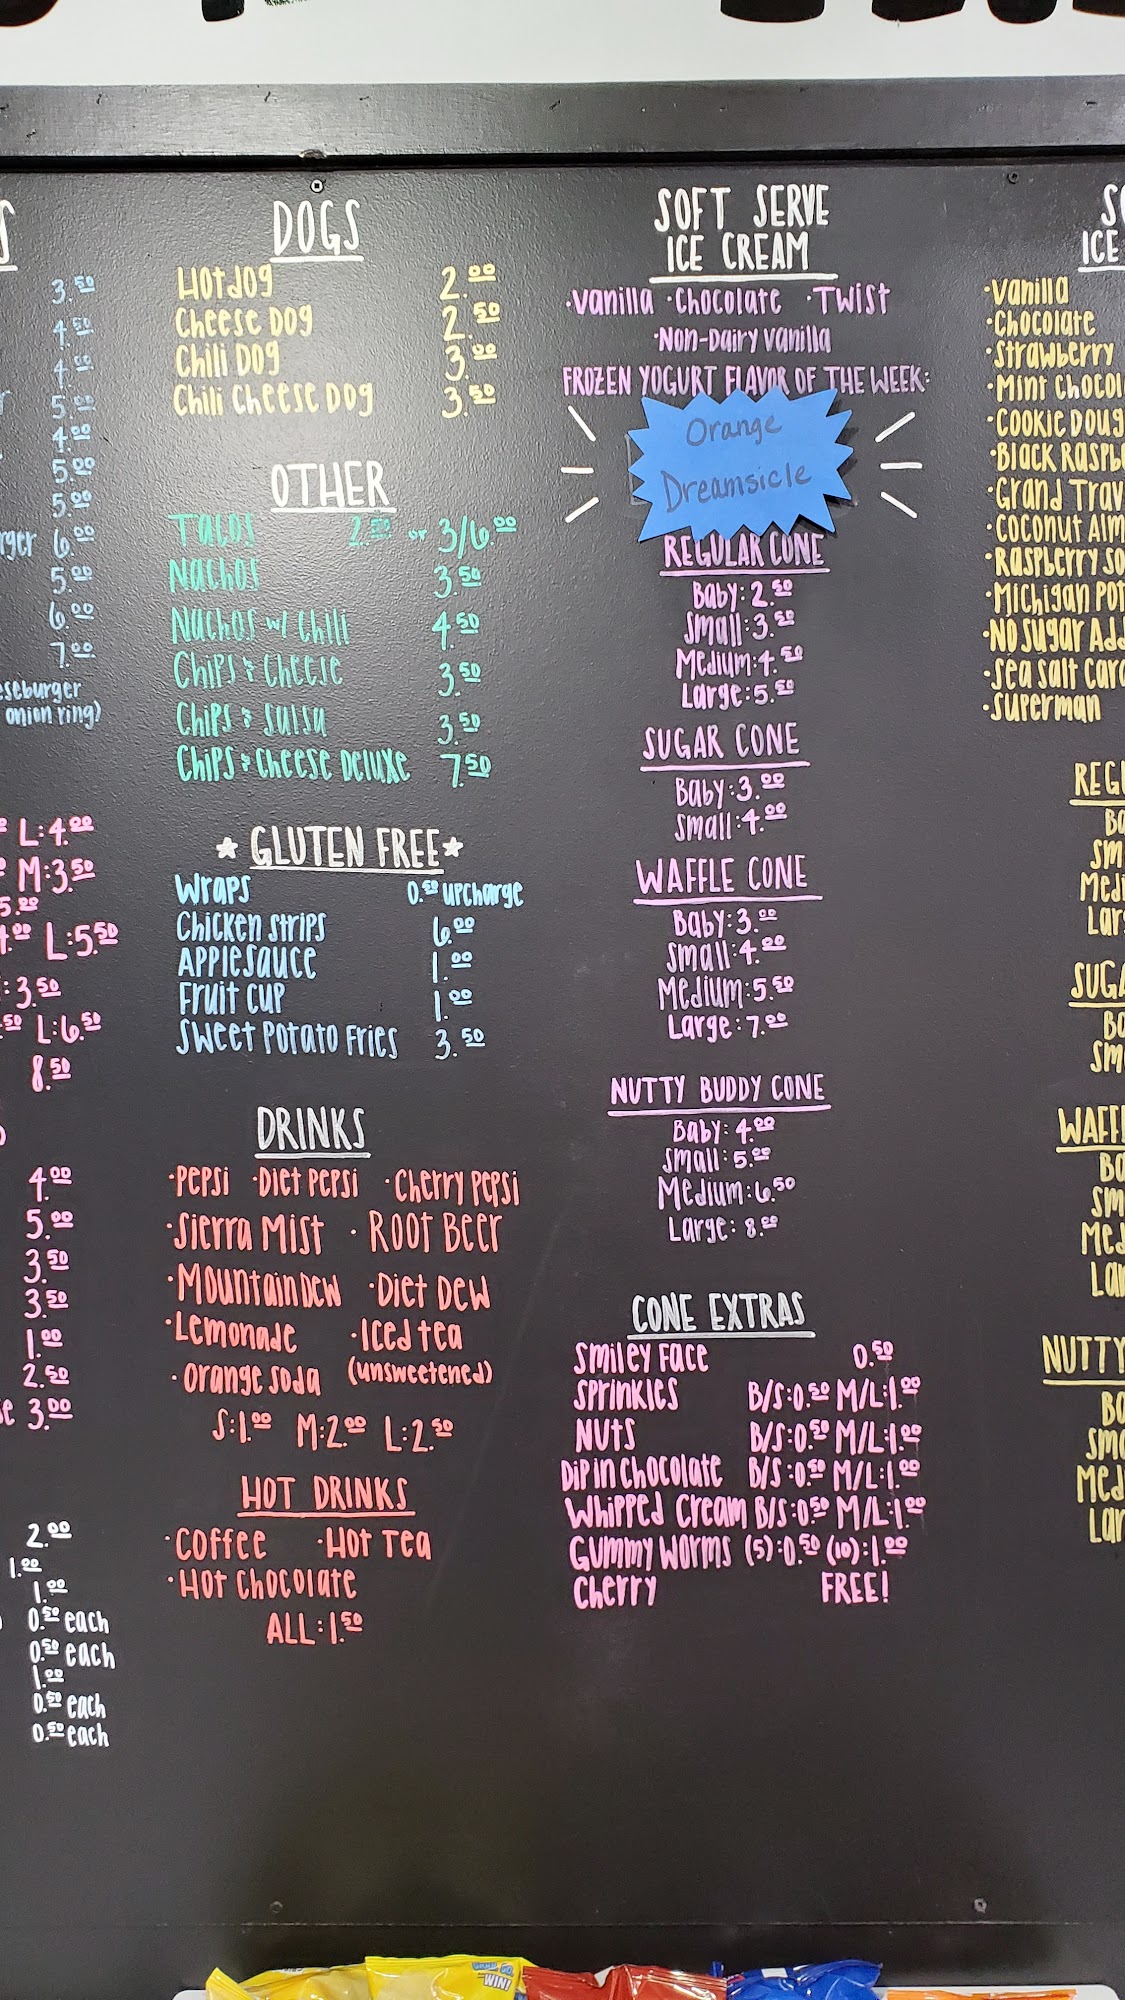 S
3.50
4.50
4.00
r 5.00
4.00
5.00
5.00
rger 6.00
5.00
6.00
7.00
eseburger
onion ring)
L:4.00
M:3.50
5.00
4.00 L:5.50
: 3.50
.50 L:6.50
8.50
4.00
5.00
3.50
3.50
1.00
2.50
se 3.00
2.00
1.00
1.00
0.50 each
0.50 each
1.00
0.50 each
0.50 each
DOGS
Hotdog 2.00
Cheese Dog 2.50
Chili Dog 3.00
Chili Cheese Dog 3.50
OTHER
Tacos 2.50 or 3/6.00
Nachos 3.50
Nachos w/ Chili 4.50
Chips & Cheese 3.50
Chips & Salsa 3.50
Chips & Cheese Deluxe 7.50
★ GLUTEN FREE ★
Wraps 0.50 upcharge
Chicken strips 6.00
Applesauce 1.00
Fruit cup 1.00
Sweet Potato Fries 3.50
DRINKS
·Pepsi ·Diet Pepsi ·Cherry Pepsi
·Sierra Mist ·Root Beer
·Mountain Dew ·Diet Dew
·Lemonade ·Iced tea
·Orange Soda (unsweetened)
S:1.00 M:2.00 L:2.50
HOT DRINKS
·Coffee ·Hot Tea
·Hot Chocolate
ALL: 1.50
SOFT SERVE
ICE CREAM
·Vanilla ·Chocolate ·Twist
·Non-Dairy Vanilla
FROZEN YOGURT FLAVOR OF THE WEEK:
Orange
Dreamsicle
REGULAR CONE
Baby: 2.50
Small: 3.50
Medium: 4.50
Large: 5.50
SUGAR CONE
Baby: 3.00
Small: 4.00
WAFFLE CONE
Baby: 3.00
Small: 4.00
Medium: 5.50
Large: 7.00
NUTTY BUDDY CONE
Baby: 4.00
Small: 5.00
Medium: 6.50
Large: 8.00
CONE EXTRAS
Smiley Face 0.50
Sprinkles B/S:0.50 M/L:1.00
Nuts B/S:0.50 M/L:1.00
Dip in Chocolate B/S:0.50 M/L:1.00
Whipped Cream B/S:0.50 M/L:1.00
Gummy Worms (5):0.50 (10):1.00
Cherry FREE!
ICE
·Vanilla
·Chocolate
·Strawberry
·Mint Chocol
·Cookie Doug
·Black Raspb
·Grand Trav
·Coconut Alm
·Raspberry So
·Michigan Pot
·No Sugar Add
·Sea Salt Car
·Superman
REGU
Ba
Sm
Medi
Lar
SUGA
Ba
Sm
WAFFL
Ba
Sm
Med
Lar
NUTTY
Ba
Sma
Med
Lar
WIN!